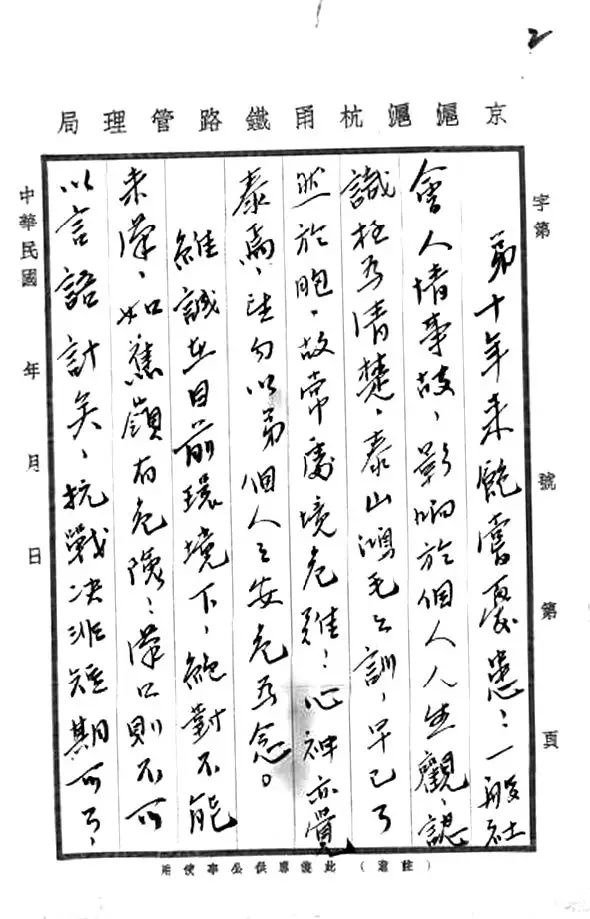 2
京滬滬杭甬鐵路管理局
字第 號 第 頁
弟十年来飽嘗憂患：一般社
會人情事故、影响於個人人生觀、認
識極为清楚、泰山鴻毛之訓，早已了
然於胞、故常處境危難：心神亦覺
泰焉、望勿以弟個人之安危为念。
維誠在目前環境下，絕對不能
来漢、如蕉嶺有危險：漢口則不可
以言語計矣、抗戰决非短期可了、
中華民國 年 月 日
（註意）此箋專供公事使用